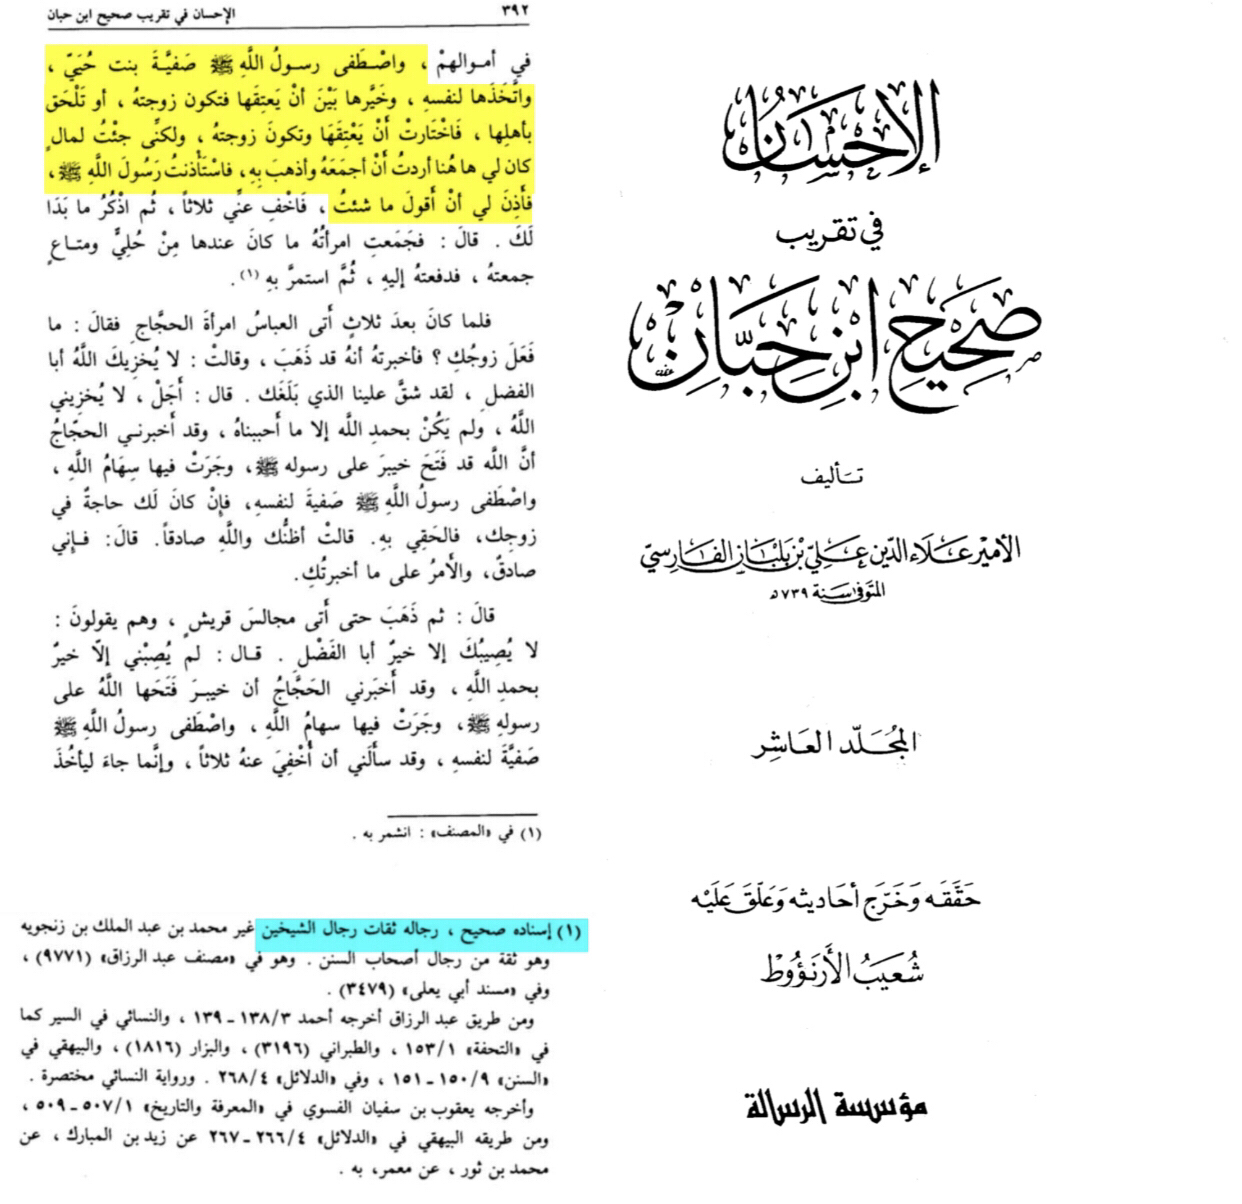 ٣٩٢
الإحسان في تقريب صحيح ابن حبان
في أموالهمْ ، واصْطَفى رسولُ اللَّهِ ﷺ صَفيَّةَ بنت حُيَيّ ،
واتَّخَذَها لنفسهِ ، وخَيَّرها بَيْنَ أنْ يَعتِقَها فتكون زوجتهُ ، أو تَلْحَق
بأهلِها ، فَاخْتَارتْ أنْ يَعْتِقَهَا وتكونَ زوجتهُ ، ولكنِّى جئْتُ لمالٍ
كان لي ها هُنا أردتُ أَنْ أجمَعَهُ وأذهبَ بِهِ، فاسْتَأْذنتُ رَسُولَ اللَّهِ ﷺ ،
فأَذِنَ لي أنْ أَقولَ ما شئتُ ، فَاخْفِ عنِّي ثلاثاً ، ثم اذْكُرْ ما بَدَا
لَكَ . قالَ : فجَمَعتِ امرأتُهُ ما كانَ عندها مِنْ حُليٍّ ومتـاعٍ
جمعتهُ ، فدفعتهُ إليهِ ، ثُمَّ استمرَّ بهِ (١).
فلما كانَ بعدَ ثلاثٍ أَتى العباسُ امرأةَ الحجَّاجِ فقالَ : ما
فَعَلَ زوجُكِ ؟ فأخبرتهُ أنهُ قد ذَهَبَ ، وقالتْ : لا يُخزِيكَ اللَّهُ أبا
الفضلِ ، لقد شقَّ علينا الذي بَلَغَك . قال : أَجَلْ ، لا يُخزِيني
اللَّهُ ، ولم يَكُنْ بحمدِ اللَّه إلا ما أَحببناهُ ، وقد أَخبرنـي الحجّاجُ
أنَّ اللَّه قد فَتَحَ خيبرَ على رسوله ﷺ، وجَرَتْ فيها سِهَامُ اللَّهِ ،
واصْطَفى رسولُ اللَّهِ ﷺ صَفيةَ لنفسهِ، فإنْ كانَ لَك حاجةٌ في
زوجِك، فالحَقِي بهِ. قالتْ أظنُّك واللَّهِ صادقاً. قالَ: فـإني
صادقٌ، والأَمرُ على ما أخبرتُكِ.
قالَ : ثم ذَهَبَ حتى أَتى مجالسَ قريشٍ ، وهم يقولونَ :
لا يُصِيبُكَ إلا خيرٌ أبا الفَضْلِ . قـال : لم يُصِبْني إلاّ خيرٌ
بحمدِ اللَّهِ ، وقد أَخبَرني الحَجَّاجُ أن خيبـرَ فَتَحَها اللَّهُ على
رسولهِ ﷺ، وجَرَتْ فيها سهامُ اللَّهِ ، واصْطَفى رسولُ اللَّهِ ﷺ
صَفيَّةَ لنفسهِ ، وقد سأَلَني أن أُخْفِيَ عنهُ ثلاثاً ، وإنَّما جاءَ ليأخُذَ
(١) في «المصنف» : انشمر به .
(١) إسناده صحيح ، رجاله ثقات رجال الشيخين غير محمد بن عبد الملك بن زنجويه
وهو ثقة من رجال أصحاب السنن . وهو في «مصنف عبد الرزاق» (٩٧٧١) ،
وفي «مسند أبي يعلى» (٣٤٧٩) .
ومن طريق عبد الرزاق أخرجه أحمد ١٣٨/٣ ـ ١٣٩ ، والنسائي في السير كما
في «التحفة» ١٥٣/١ ، والطبراني (٣١٩٦) ، والبزار (١٨١٦) ، والبيهقي في
«السنن» ١٥٠/٩ ـ ١٥١ ، وفي «الدلائل» ٢٦٨/٤ . ورواية النسائي مختصرة .
وأخرجه يعقوب بن سفيان الفسوي في «المعرفة والتاريخ» ٥٠٧/١ ـ ٥٠٩ ،
ومن طريقه البيهقي في «الدلائل» ٢٦٦/٤ ـ ٢٦٧ عن زيد بن المبارك ، عن
محمد بن ثور ، عن معمر، به .
الإحسان
في تقريب
صحيح ابن حبان
تأليف
الأمير علاء الدين علي بن بلبان الفارسي
المتوفى سنة ٧٣٩ هـ
المجلد العاشر
حققه وخرج أحاديثه وعلق عليه
شعيب الأرنؤوط
مؤسسة الرسالة